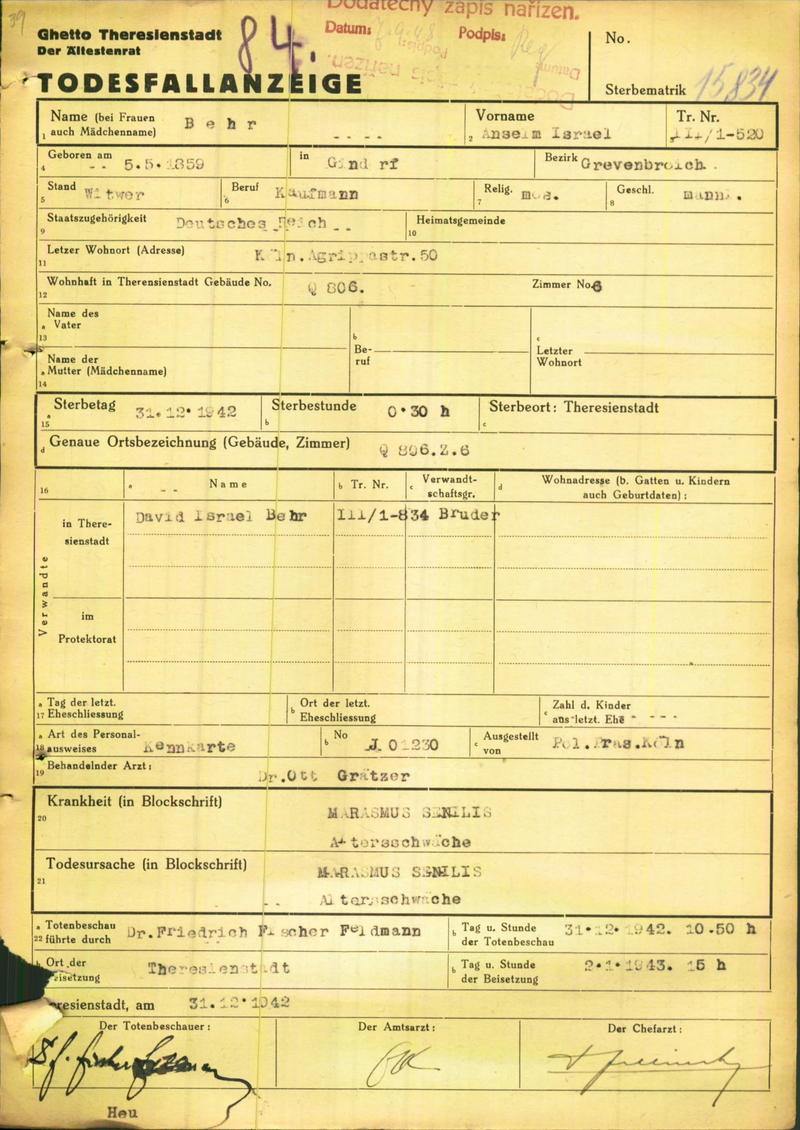 39
Dodatečný zápis nařízen.
Ghetto Theresienstadt
Der Ältestenrat
84.
Datum:
Podpis:
No.
TODESFALLANZEIGE
Sterbematrik 15834
Name (bei Frauen auch Mädchenname) Behr - - - -
1
Vorname Anselm Israel
2
Tr. Nr. III/1-520
3
Geboren am -- 5.5.1859
4
in Gind rf
Bezirk Grevenbroich.
Stand Witwer
5
Beruf Kaufmann
6
Relig. mos.
7
Geschl. männ.
8
Staatszugehörigkeit Deutsches Reich --
9
Heimatsgemeinde
10
Letzer Wohnort (Adresse) Köln.Agrippastr.50
11
Wohnhaft in Theresienstadt Gebäude No. Q 806.
12
Zimmer No. 6
Name des
a Vater
13
b
Beruf
c
Letzter
Wohnort
Name der
a Mutter (Mädchenname)
14
Sterbetag 31.12.1942
a
15
Sterbestunde 0.30 h
b
Sterbeort: Theresienstadt
c
d Genaue Ortsbezeichnung (Gebäude, Zimmer) Q 806.Z.6
16
a Name
--
b Tr. Nr.
c Verwandtschaftsgr.
d Wohnadresse (b. Gatten u. Kindern auch Geburtdaten):
Verwandte
in Theresienstadt
David Israel Behr III/1-834 Bruder
im
Protektorat
a Tag der letzt.
17 Eheschliessung
b Ort der letzt.
Eheschliessung
c Zahl d. Kinder
aus letzt. Ehe - - - -
a Art des Personal-
18 ausweises Kennkarte
b No J 01230
c Ausgestellt von Pol.Präs.Köln
Behandelnder Arzt: Dr.Ott Grätzer
19
Krankheit (in Blockschrift) MARASMUS SENILIS
20
Altersschwäche
Todesursache (in Blockschrift) MARASMUS SENILIS
21
-- Altersschwäche
a Totenbeschau
22 führte durch Dr.Friedrich Fischer Feldmann
b Tag u. Stunde
der Totenbeschau 31.12.1942. 10.50 h
Ort der
eisetzung Theresienstadt
b Tag u. Stunde
der Beisetzung 2.1.1943. 15 h
resienstadt, am 31.12.1942
Der Totenbeschauer:
Der Amtsarzt:
Der Chefarzt:
Heu